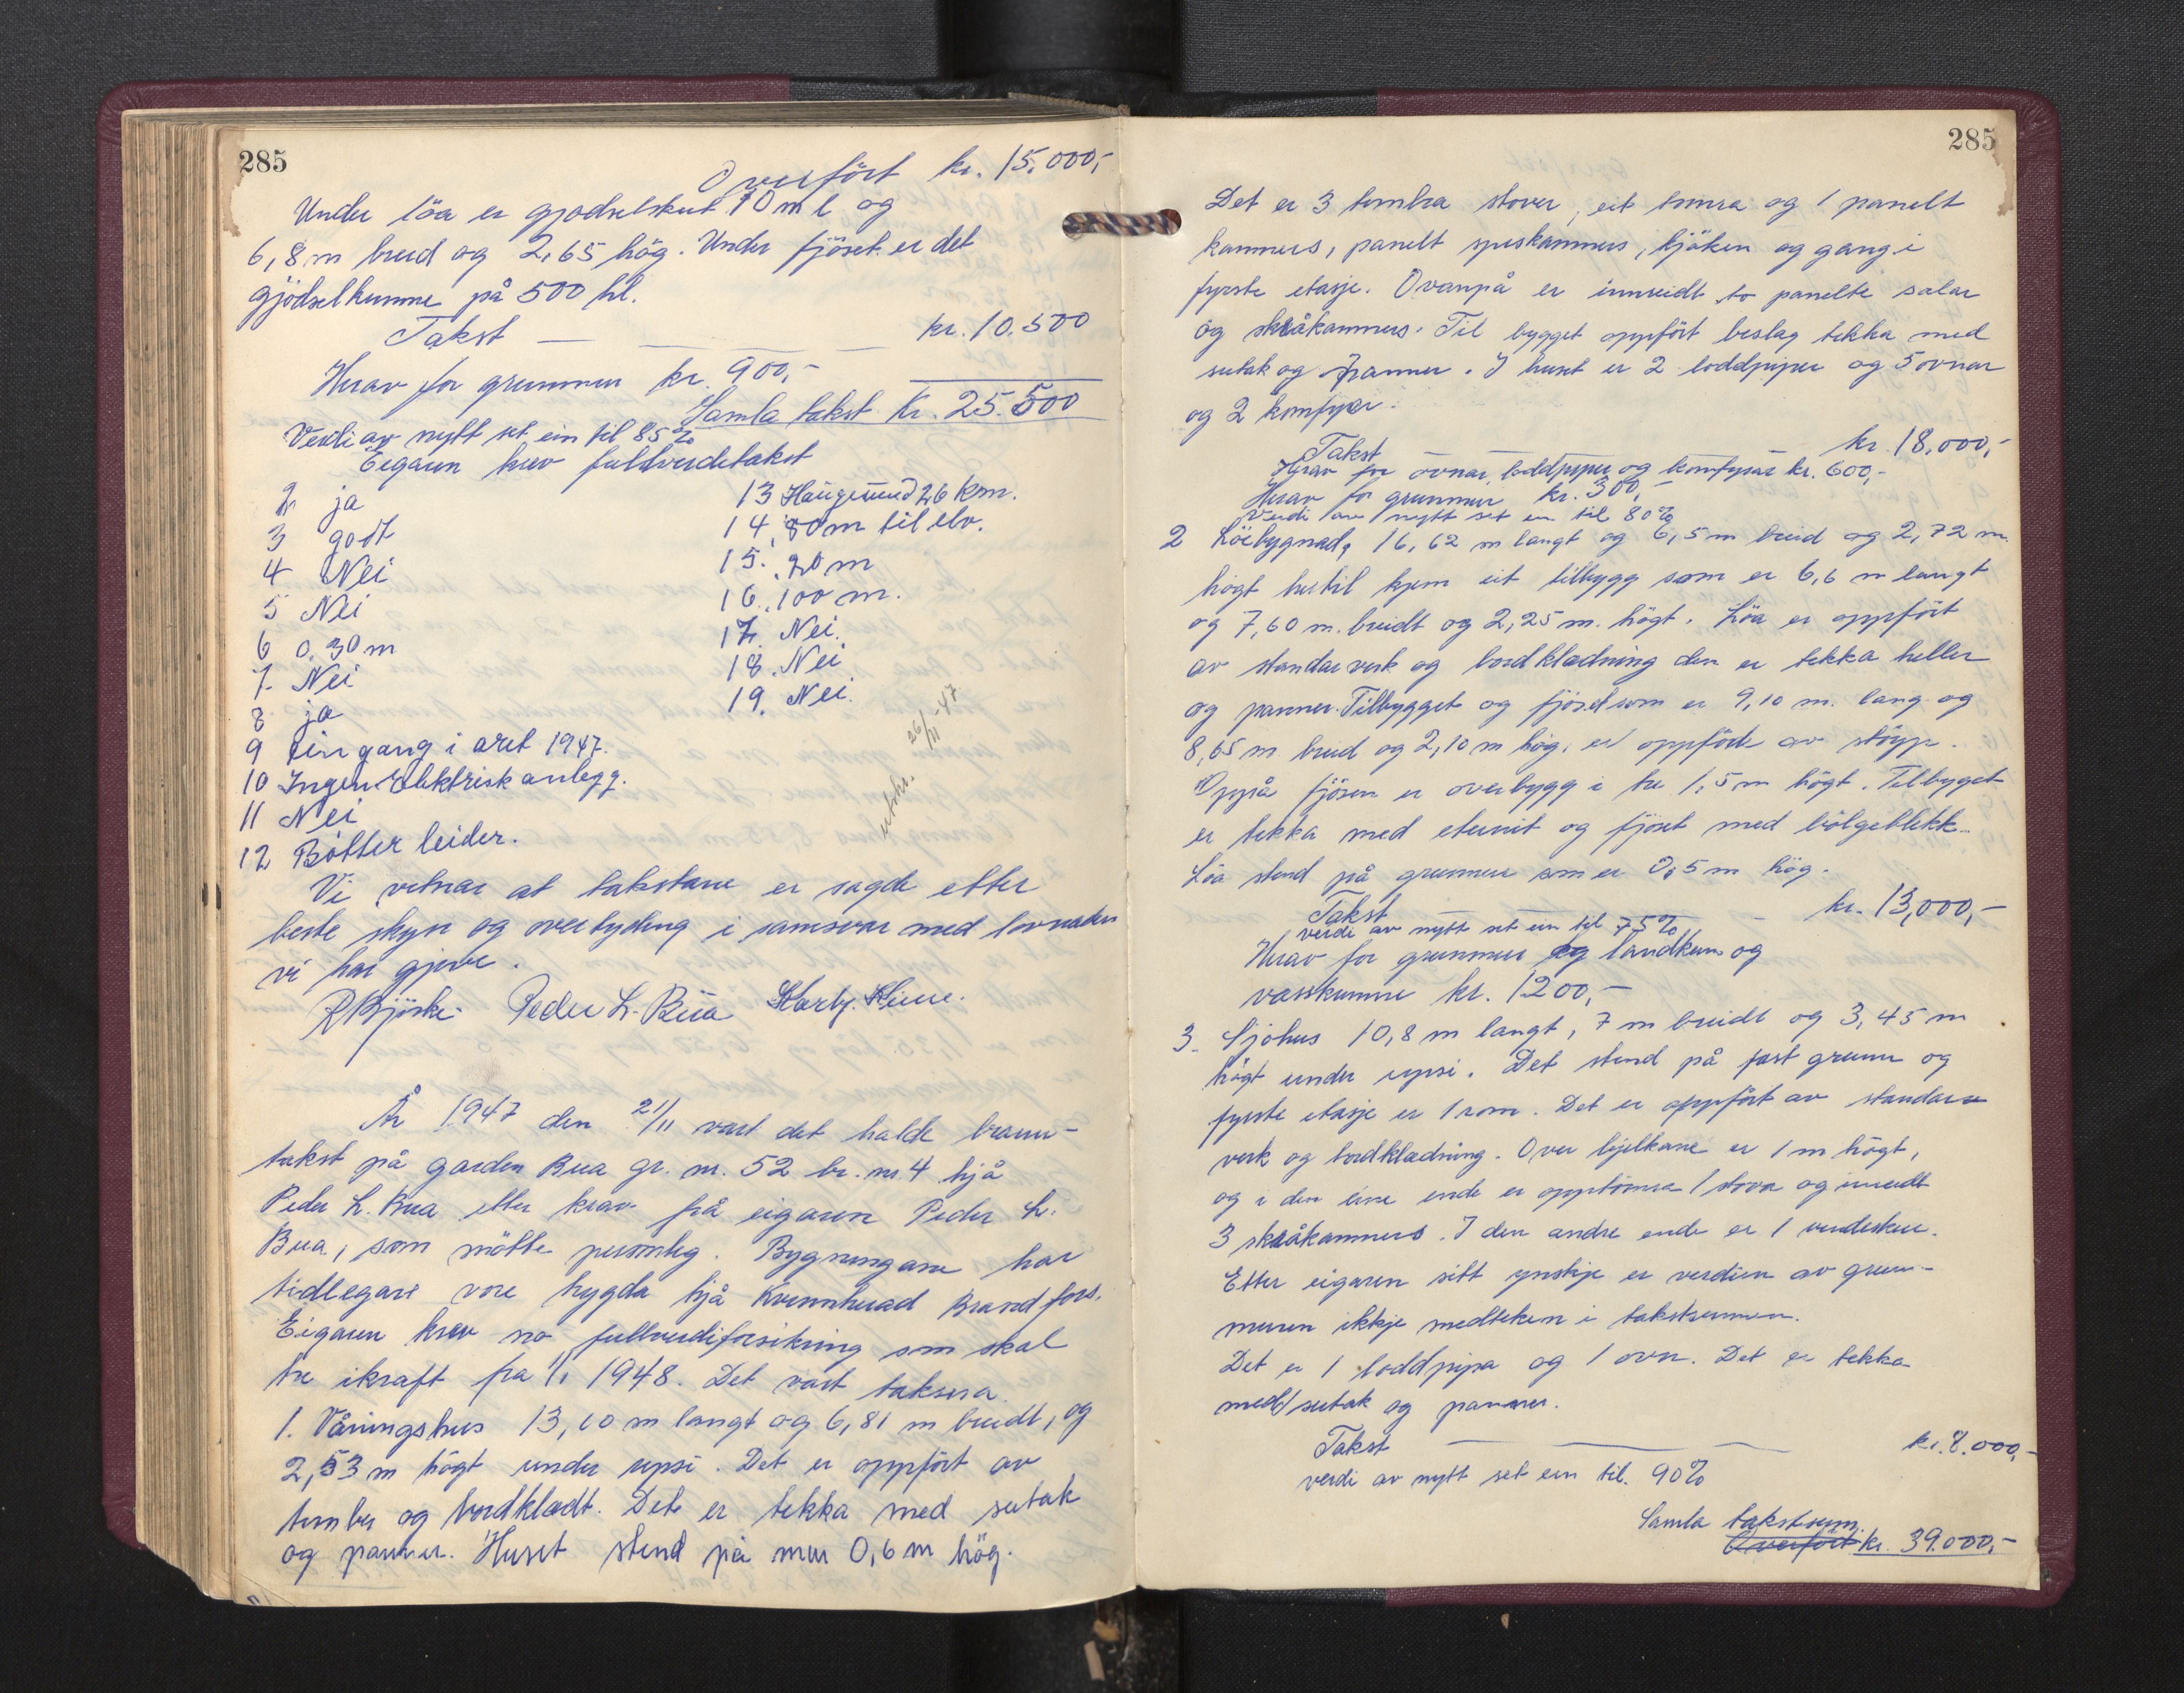 285
Overfört kr. 15.000,-
Under löa er gjodselskut 10 m l og
6,8 m breid og 2,65 hög. Under fjöset er det
gjödselkumme på 500 hl.
Takst — kr. 10.500
Herav for grunmur kr. 900,-
Samla takst Kr. 25.500
Verdi av nytt set ein til 85%
Eigaren krev fullverditakst
2 ja
3 godt
4 Nei
5 Nei
6 0.30 m
7 Nei
8 ja
9 Ein gang i året 1947.
10 Ingen Elektrisk anlegg.
11 Nei
12 Bötter leider.
13 Haugesund 26 km.
14. 80 m til elv.
15. 20 m
16. 100 m.
17. Nei.
18. Nei
19. Nei.
utskr. 26/11-47
Vi vitnar at takstane er sagde etter
beste skyn og overtyding i samsvar med lovnaden
vi har gjeve.
Peder L. Bua
År 1947 den 21/11 vart det halde brann-
takst på garden Bua gr. nr. 52 br. nr. 4 hjå
Peder L. Bua etter krav frå eigaren Peder L.
Bua, som mötte personleg. Bygningane har
tidlegare vore trygda hjå Kvinnherad Brandfors.
Eigaren krev no fullverdiforsikring som skal
tre ikraft fra 1/1 1948. Det vart taksera
1. Våningshus 13,10 m langt og 6,81 m breidt, og
2,53 m högt under upsi. Det er oppfört av
timber og bordkledt. Det er tekka med sutak
og panner. Huset stend på mur 0,6 m hög.
285
Det er 3 timbra stover, eit timra og 1 panelt
kammers, panelt speskammers, kjöken og gang i
fyrste etasje. Ovanpå er innreidt to panelte salar
og skråkammers. Til bygget oppfört beslag tekka med
sutak og panner. I huset er 2 loddpiper og 5 ovnar
og 2 komfyrer.
Takst kr. 18.000,-
Herav for ovnar, loddpiper og komfyrar kr. 600,-
Herav for grunmur kr. 300,-
Verdi av nytt set ein til 80%
2 Löebygnad, 16,62 m langt og 6,5 m breid og 2,72 m.
högt hertil kjem eit tilbygg som er 6,6 m langt
og 7,60 m. breidt og 2,25 m. högt. Löa er oppfört
av standarverk og bordkledning den er tekka heller
og panner. Tilbygget og fjöset som er 9,10 m. lang og
8,65 m breid og 2,10 m hög, er oppförde av støyp.
Oppå fjösen er overbygg i tre 1,5 m högt. Tilbygget
er tekka med eternit og fjöset med bölgeblekk.
Löa stend på grunmur som er 0,5 m hög.
Takst kr. 13,000,-
verdi av nytt set ein til 75%
Herav for grunmur og landkum og
vasskumme kr. 1200,-
3. Sjöhus 10,8 m langt, 7 m breidt og 3,45 m
högt under upsi. Det stend på fast grunn og
fyrste etasje er 1 rom. Det er oppfört av standar-
verk og bordkledning. Over bjelkane er 1 m högt,
og i den eine ende er opptömra 1 stova og inreidt
3 skråkammers. I den andre ende er 1 vedeskur.
Etter eigaren sitt ynskje er verdien av grun-
muren ikkje medteken i takstsummen.
Det er 1 loddpipa og 1 ovn. Det er tekka
med sutak og panner.
Takst kr. 8.000,-
verdi av nytt set ein til. 90%
Samla takstsum.
Overfört kr. 39.000,-